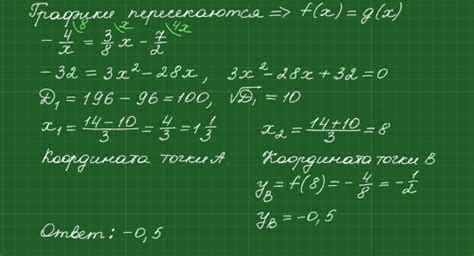 Графики пересекаются => f(x) = g(x)
- 4/x = 3/8 x - 7/2
8 x 4x
-32 = 3x² - 28x, 3x² - 28x + 32 = 0
D₁ = 196 - 96 = 100, √D₁ = 10
x₁ = (14-10)/3 = 4/3 = 1 1/3
x₂ = (14+10)/3 = 8
Координата точки A.
Координата точки B
y_B = f(8) = - 4/8 = - 1/2
y_B = -0,5
Ответ: -0,5